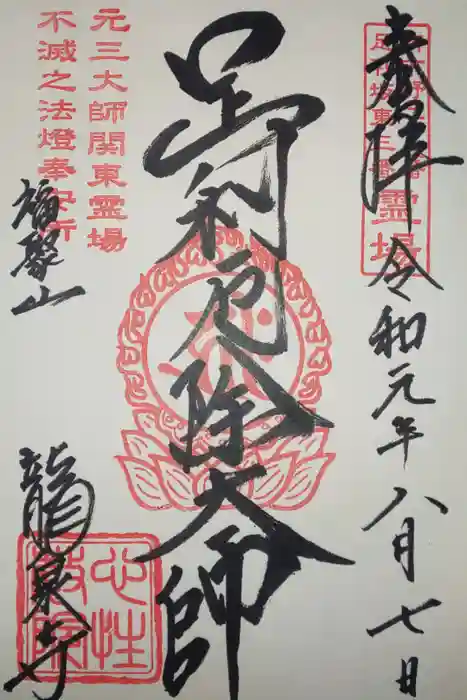 奉拝 令和元年八月七日
霊場
足利厄除大師
元三大師関東霊場
不滅之法燈奉安所
福聚山
龍泉寺
心性